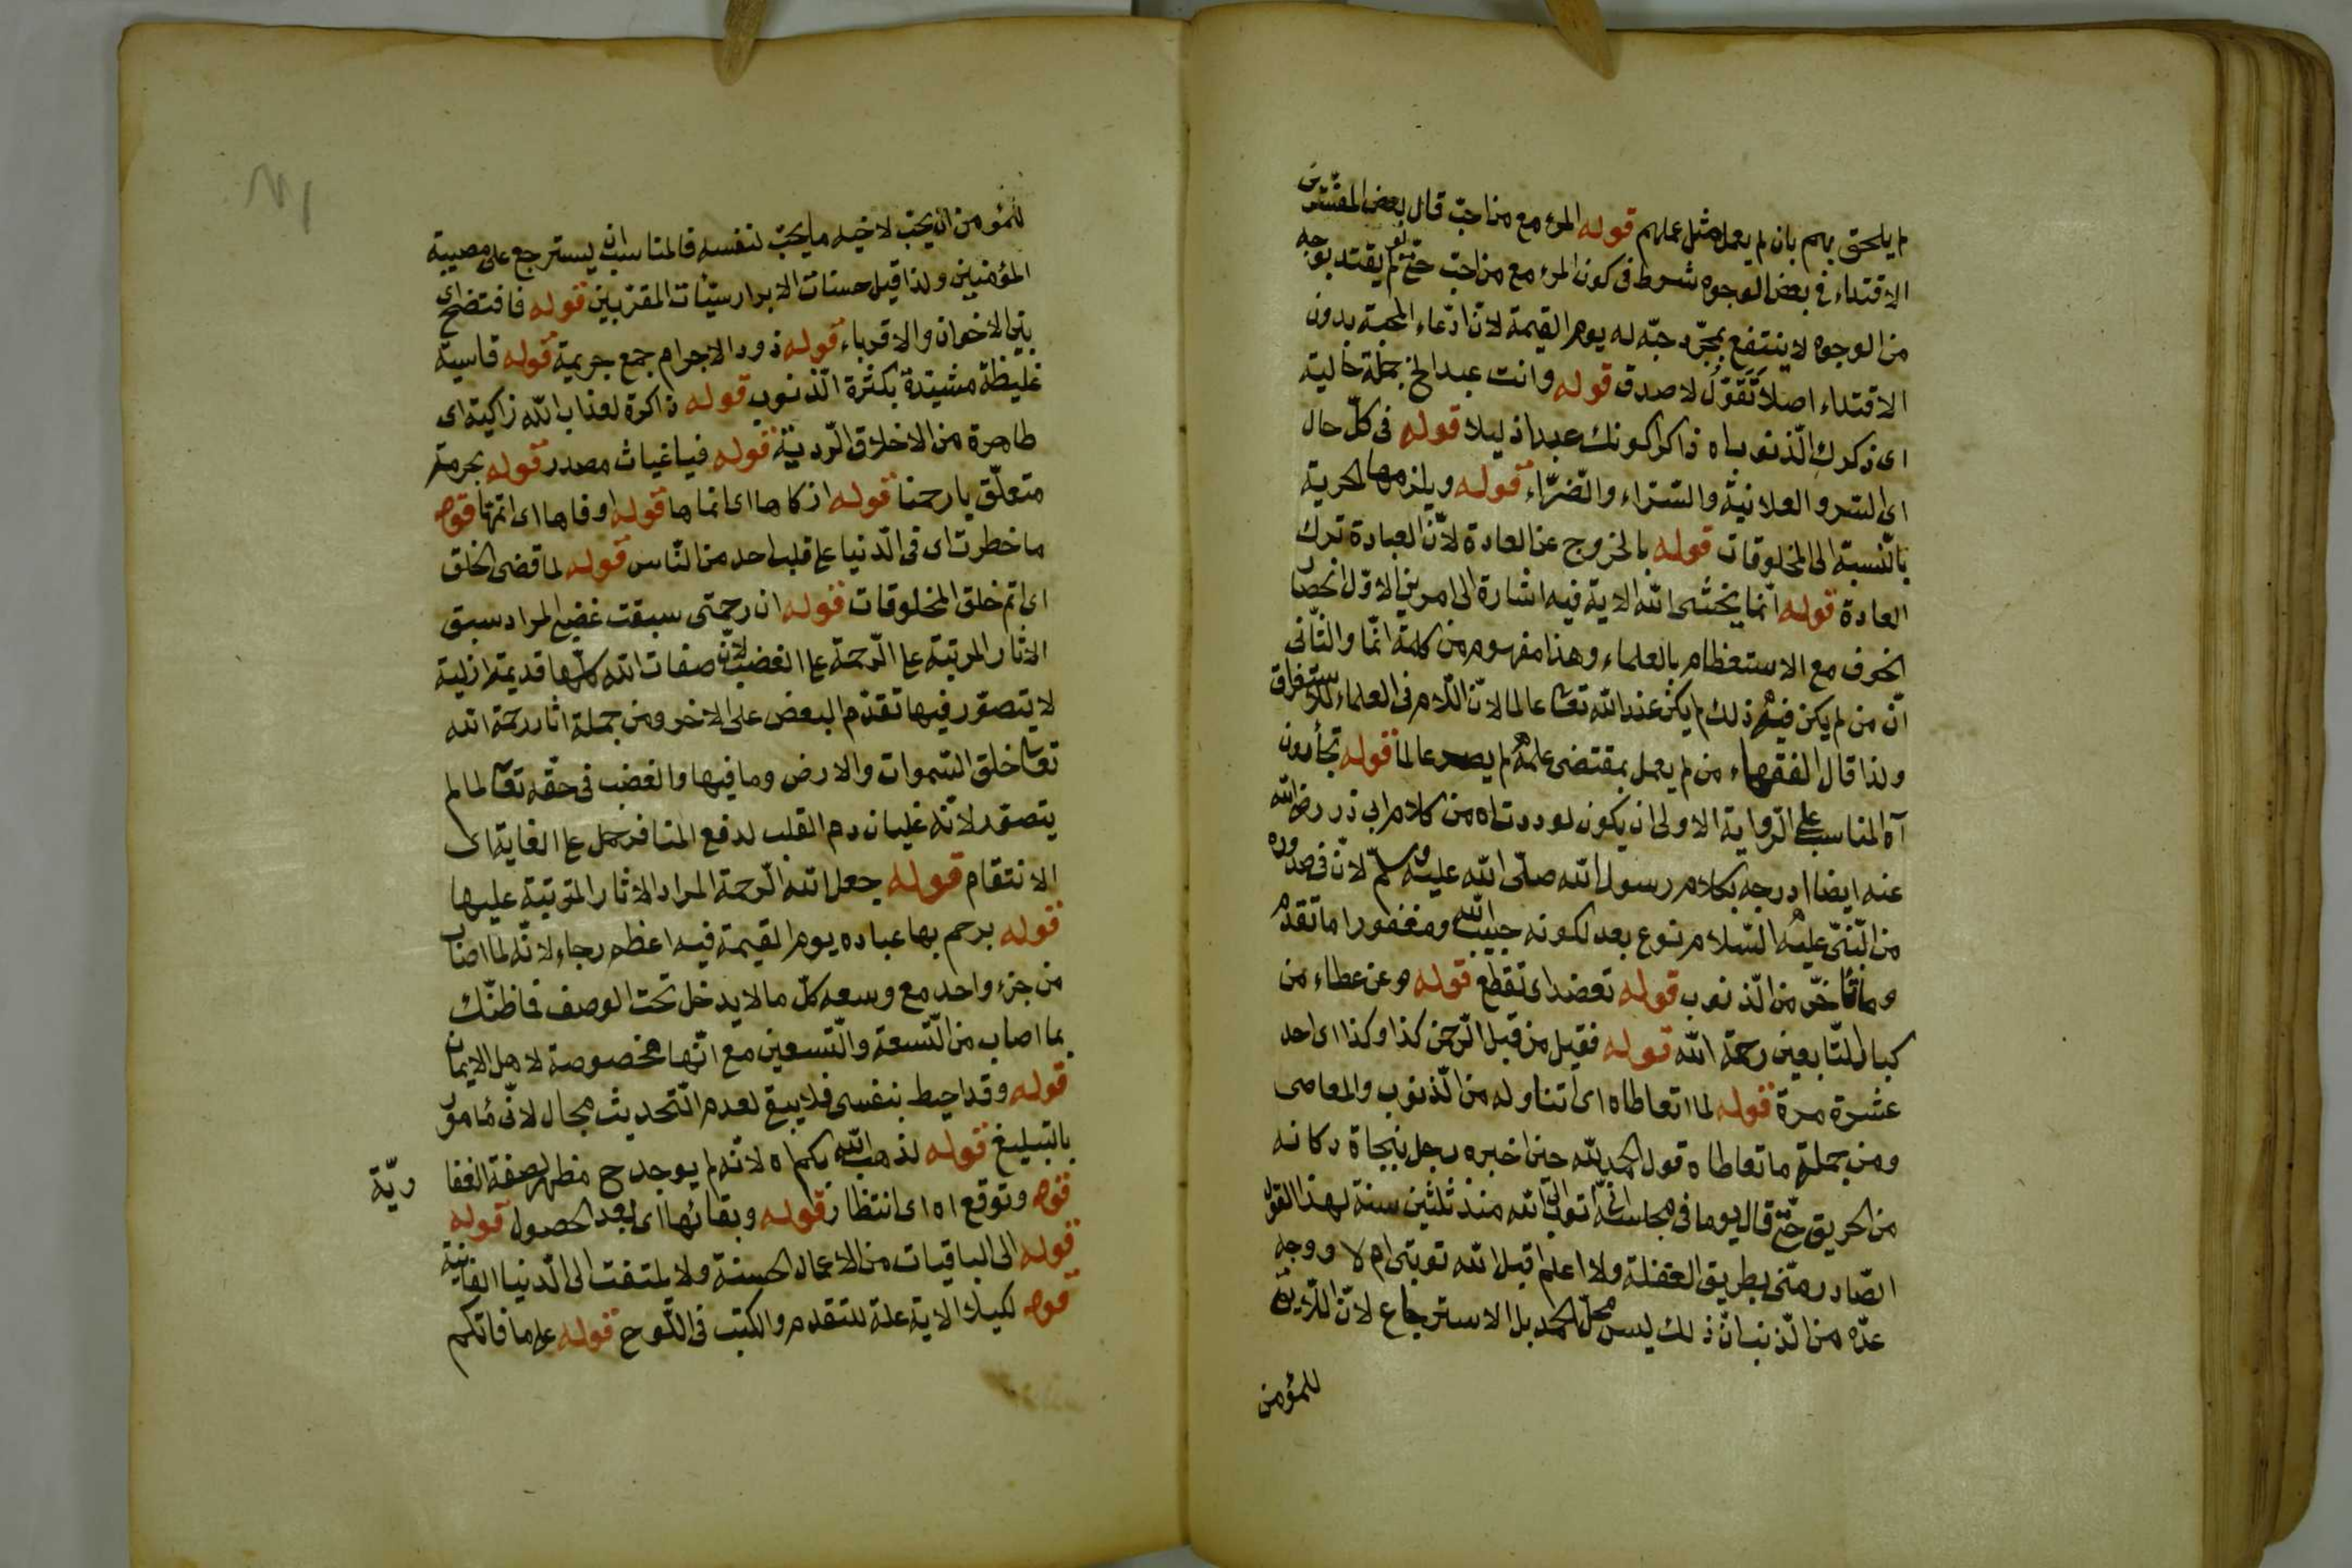 لم يلحق بهم بان لم يعمل مثل عملهم قوله المرء مع من احبّ قال بعض المفسّرين
الاقتداء فى بعض الوجوه شرط فى كون المرء مع من احبّ حتّى لو لم يقتد بوجه
من الوجوه لا ينتفع بمجرّد حبّه له يوم القيمة لانّ ادّعاء المحبة بدون
الاقتداء اصلا تَقَوُّل لا صدق قوله وانت عبد الخ جملة حالية
اى ذكرك الّذنوب اه ذاكرا كونك عبدا ذليلا قوله فى كلّ حال
اى السّر والعلانيّة والسّرّاء والضّرّاء قوله ويلزمها الحرية
بالنّسبة الى المخلوقات قوله بالخروج عن العادة لانّ العبادة ترك
العادة قوله انّما يخشى اللّه الاية فيه اشارة الى امرين الاوّل انحصار
الخوف مع الاستعظام بالعلماء وهذا مفهوم من كلمة انّما والثّانى
انّ من لم يكن فيه ذلك لم يكن عند اللّه تعالى عالما لانّ اللّام فى العلماء للاستغراق
ولذا قال الفقهاء من لم يعمل بمقتضى علمه لم يصر عالما قوله تجأرون
آه المناسب على الرّواية الاولى ان يكون لوددت اه من كلام ابى ذر رضى اللّه
عنه ايضا ادرجه بكلام رسول اللّه صلّى اللّه عليه وسلّم لانّ فى صدوره
من النّبىّ عليه السّلام نوع بعد لكونه حبيب اللّه ومغفورا ما تقدّم
وما تأخّر من الّذنوب قوله تعضد اى تقطع قوله وعن عطاء من
كبار التّابعين رحمة اللّه قوله فقيل من قبل الرّحمن كذا وكذا اى احد
عشرة مرة قوله لما اتعاطاه اى اتناوله من الّذنوب والمعاصى
ومن جملة ما تعاطاه قول الحمد للّه حين اخبره رجل بنجاة دكانه
من الحريق حتّى قال يوما فى مجالسه انّى اتوب الى اللّه منذ ثلثين سنة لهذا القول
الصّادر منّى بطريق الغفلة ولا اعلم اقبل اللّه توبتى ام لا ووجه
عدّه من الّذنب انّ ذلك ليس محلّ الحمد بل الاسترجاع لانّ اللّايق
للمؤمن
للمؤمن ان يحبّ لاخيه ما يحبّ لنفسه فالمناسب ان يسترجع على مصيبة
المؤمنين ولذا قيل حسنات الابرار سيّئات المقرّبين قوله فافتضح اى
بين الاخوان والاقرباء قوله ذوو الاجرام جمع جريمة قوله قاسية
غليظة مشيّدة بكثرة الّذنوب قوله ذاكرة لعذاب اللّه زاكية اى
طاهرة من الاخلاق الّرديّة قوله فيا غياث مصدر قوله بحرمة
متعلّق يا رحمنا قوله ازكاها اى انماها قوله اوفاها اى اتمّها قوله
ما خطرت اى فى الّدنيا على قلب احد من النّاس قوله لما قضى الخلق
اى اتم خلق المخلوقات قوله ان رحمتى سبقت غضبى المراد سبق
الاثار المرتبة على الرّحمة على الغضب لانّ صفات اللّه كلّها قديمة ازلية
لا يتصوّر فيها تقدّم البعض على الاخر ومن جملة اثار رحمة اللّه
تعالى خلق السّموات والارض وما فيها والغضب فى حقّه تعالى لما لم
يتصوّر لانّه غليان دم القلب لدفع المنافر حمل على الغاية اى
الانتقام قوله جعل اللّه الرّحمة المراد الاثار المترتبة عليها
قوله يرحم بها عباده يوم القيمة فيه اعظم رجاء لانّه لما اصاب
من جزء واحد مع وسعه كلّ ما لا يدخل تحت الوصف فما ظنّك
بما اصاب من التّسعة والتّسعين مع انّها مخصوصة لاهل الايمان
قوله وقد احيط بنفسى فلا يبقى لعدم التّحديث مجال لانّى مأمور
بالتبليغ قوله لذهب اللّه بكم اه لانّه لم يوجد ح مظهر لصفة الغفا
ريّة
قوله وتوقع اه اى انتظار قوله وبقائها اى بعد الحصول قوله
قوله الى الباقيات من الاعمال الحسنة ولا يلتفت الى الّدنيا الفانية
قوله لكيلا الاية علة للتقدم والكتب فى اللّوح قوله على ما فاتكم